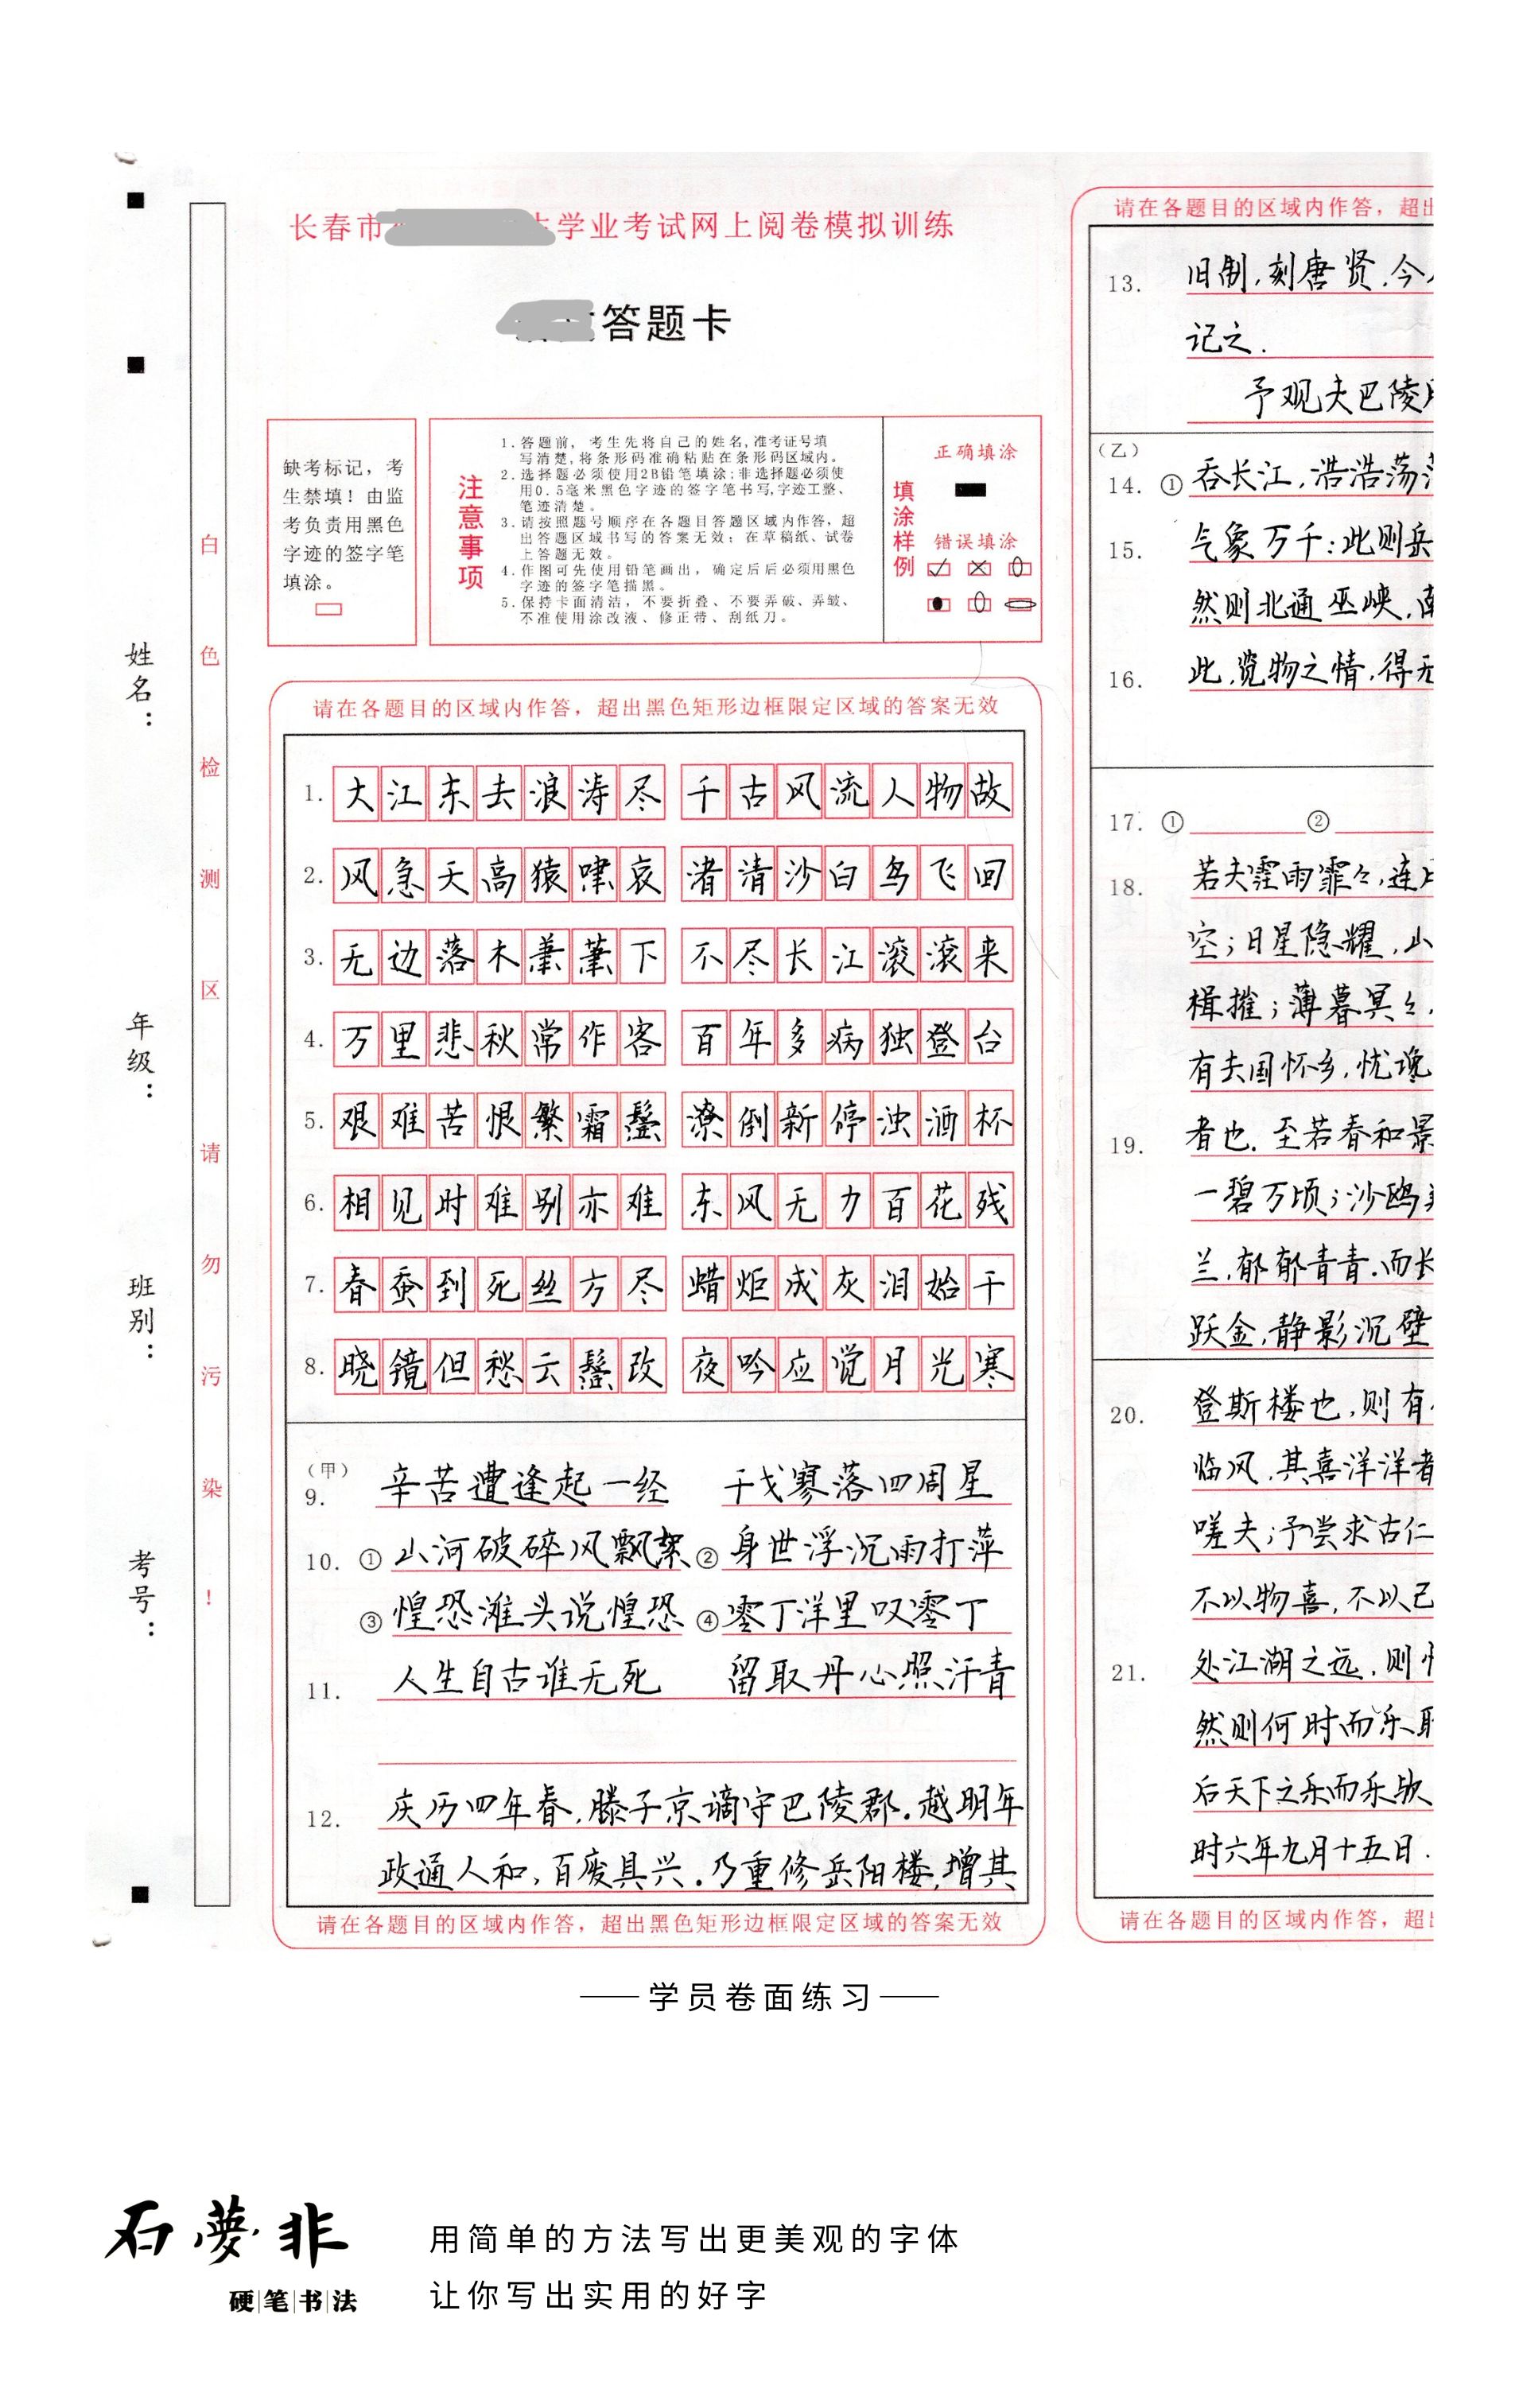 长春市
学业考试网上阅卷模拟训练
答题卡
姓名：
年级：
班别：
考号：
白色检测区 请勿污染！
缺考标记，考
生禁填！由监
考负责用黑色
字迹的签字笔
填涂。
注意事项
1.答题前，考生先将自己的姓名,准考证号填
写清楚,将条形码准确粘贴在条形码区域内。
2.选择题必须使用2B铅笔填涂;非选择题必须使
用0.5毫米黑色字迹的签字笔书写,字迹工整、
笔迹清楚。
3.请按照题号顺序在各题目答题区域内作答，超
出答题区域书写的答案无效；在草稿纸、试卷
上答题无效。
4.作图可先使用铅笔画出，确定后后必须用黑色
字迹的签字笔描黑。
5.保持卡面清洁，不要折叠、不要弄破、弄皱、
不准使用涂改液、修正带、刮纸刀。
填涂样例
正确填涂
错误填涂
请在各题目的区域内作答，超出黑色矩形边框限定区域的答案无效
1. 大江东去浪涛尽 千古风流人物故
2. 风急天高猿啸哀 渚清沙白鸟飞回
3. 无边落木萧萧下 不尽长江滚滚来
4. 万里悲秋常作客 百年多病独登台
5. 艰难苦恨繁霜鬓 潦倒新停浊酒杯
6. 相见时难别亦难 东风无力百花残
7. 春蚕到死丝方尽 蜡炬成灰泪始干
8. 晓镜但愁云鬓改 夜吟应觉月光寒
（甲）
9. 辛苦遭逢起一经 干戈寥落四周星
10. ① 山河破碎风飘絮 ② 身世浮沉雨打萍
③ 惶恐滩头说惶恐 ④ 零丁洋里叹零丁
11. 人生自古谁无死 留取丹心照汗青
12. 庆历四年春,滕子京谪守巴陵郡.越明年
政通人和,百废具兴.乃重修岳阳楼,增其
请在各题目的区域内作答，超出黑色矩形边框限定区域的答案无效
请在各题目的区域内作答，超
13. 旧制,刻唐贤.今
记之.
予观夫巴陵
（乙）
14. ① 吞长江,浩浩荡
15. 气象万千:此则岳
然则北通巫峡,南
16. 此,览物之情,得无
17. ① ②
18. 若夫霪雨霏々,连
空;日星隐耀,山
楫摧;薄暮冥々,
有去国怀乡,忧谗
19. 者也.至若春和景
一碧万顷;沙鸥
兰,郁郁青青.而长
跃金,静影沉璧
20. 登斯楼也,则有
临风,其喜洋洋者
嗟夫;予尝求古仁
不以物喜,不以己
21. 处江湖之远,则
然则何时而乐耶
后天下之乐而乐欤
时六年九月十五日.
请在各题目的区域内作答，超
学员卷面练习
石夢非
硬笔书法
用简单的方法写出更美观的字体
让你写出实用的好字